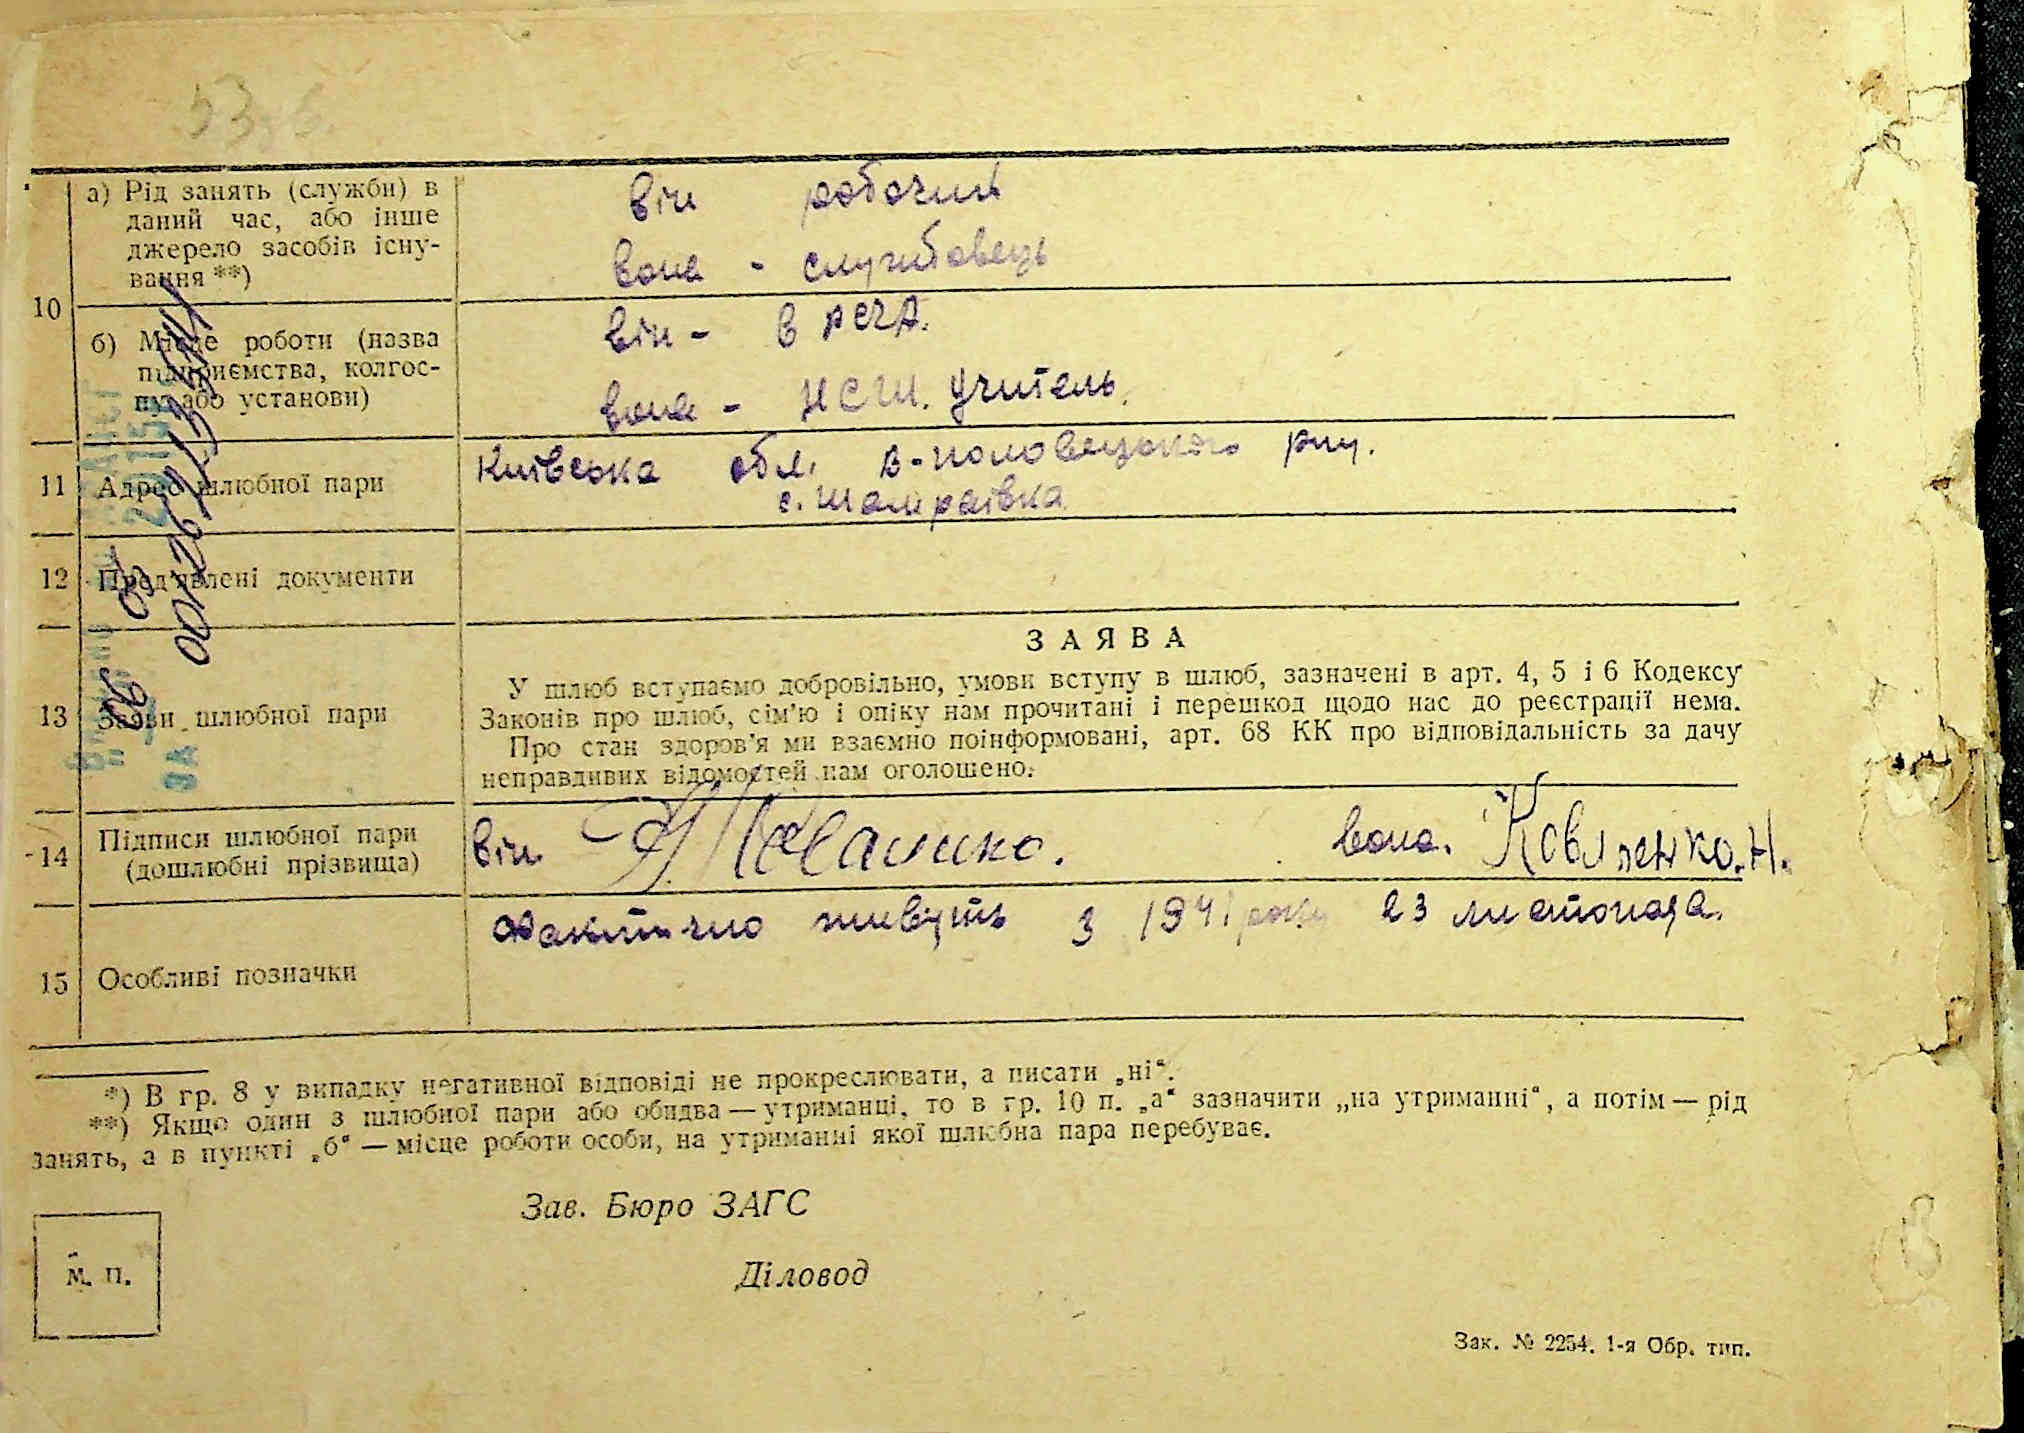 а) Рід занять (служби) в
даний час, або інше
джерело засобів існу-
вання **)
він робочий
вона - службовець
10
б) Місце роботи (назва
підприємства, колгос-
пу або установи)
він - в РСЧА.
вона - НСШ. учитель.
11
Адрес шлюбної пари
Київська обл. В-Половецького р-ну.
с. Шамраївка
12
Пред'явлені документи
13
Заяви шлюбної пари
ЗАЯВА
У шлюб вступаємо добровільно, умови вступу в шлюб, зазначені в арт. 4, 5 і 6 Кодексу
Законів про шлюб, сім'ю і опіку нам прочитані і перешкод щодо нас до реєстрації нема.
Про стан здоров'я ми взаємно поінформовані, арт. 68 КК про відповідальність за дачу
неправдивих відомостей нам оголошено.
14
Підписи шлюбної пари
(дошлюбні прізвища)
він
вона. Ковленко. Н.
15
Особливі позначки
Фактично живуть з 1941 року 23 листопада.
*) В гр. 8 у випадку негативної відповіді не прокреслювати, а писати „ні“.
**) Якщо один з шлюбної пари або обидва — утриманці, то в гр. 10 п. „а“ зазначити „на утриманні“, а потім — рід
занять, а в пункті „б“ — місце роботи особи, на утриманні якої шлюбна пара перебуває.
Зав. Бюро ЗАГС
Діловод
М. П.
Зак. № 2254. 1-я Обр. тип.